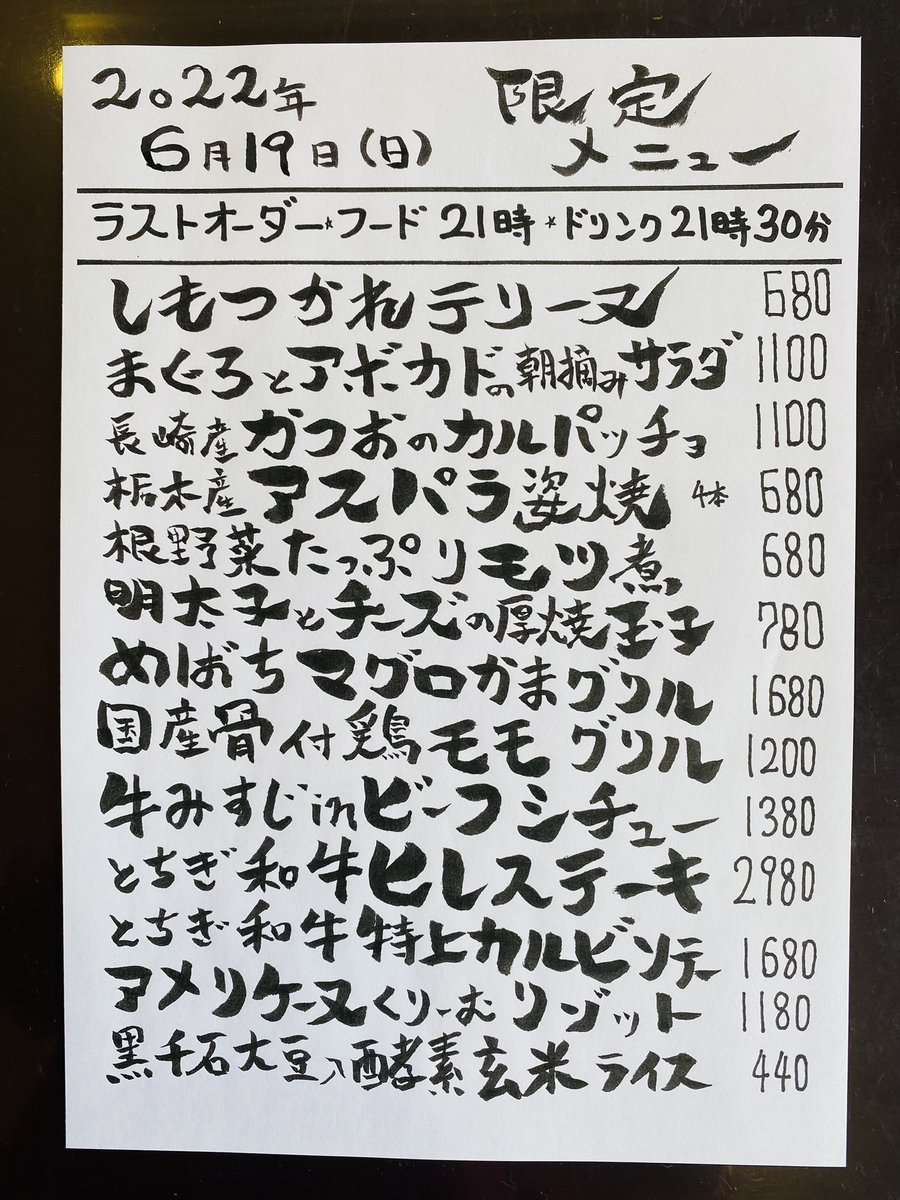 2022年 限定
6月19日(日) メニュー
ラストオーダー*フード21時*ドリンク21時30分
しもつかれテリーヌ 680
まぐろとアボカドの朝摘みサラダ 1100
長崎産かつおのカルパッチョ 1100
栃木産アスパラ姿焼 4本 680
根野菜たっぷりモツ煮 680
明太子とチーズの厚焼玉子 780
めばちマグロかまグリル 1680
国産骨付鶏モモグリル 1200
牛みすじinビーフシチュー 1380
とちぎ和牛ヒレステーキ 2980
とちぎ和牛特上カルビソテー 1680
アメリケーヌくりーむリゾット 1180
黒千石大豆入酵素玄米ライス 440